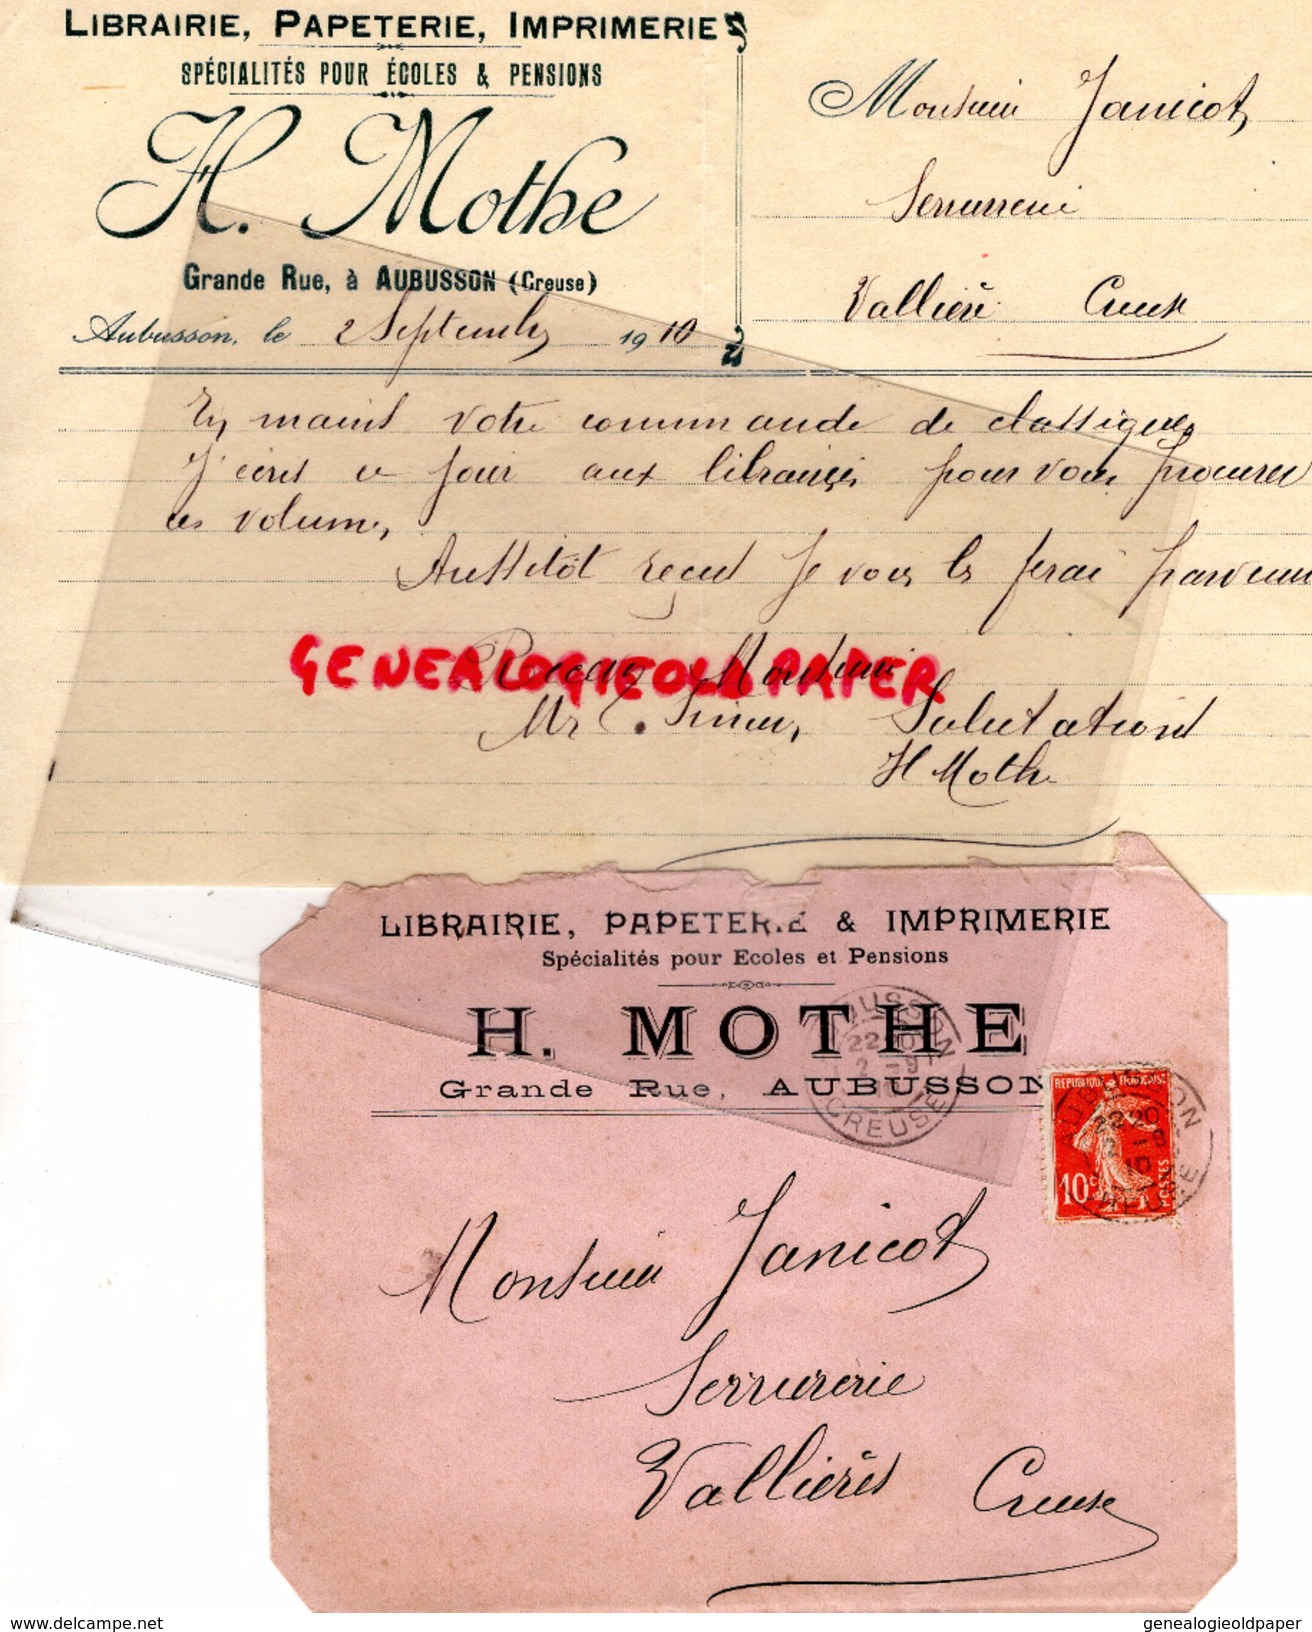 LIBRAIRIE, PAPETERIE, IMPRIMERIE
SPÉCIALITÉS POUR ÉCOLES & PENSIONS
H. Mothe
Grande Rue, à AUBUSSON (Creuse)
Aubusson, le 2 Septembre 1910
Monsieur Janicot
Serrurerie
Vallière Creuse
En mains votre commande de classiques
J'écris ce jour aux libraires pour vous procurer
ces volumes
Aussitôt reçus je vous les ferai parvenir
Recevez Monsieur
GENEALOGIEOLDPAPER
Mes Salutations
H Mothe
LIBRAIRIE, PAPETERIE & IMPRIMERIE
Spécialités pour Ecoles et Pensions
H. MOTHE
Grande Rue, AUBUSSON
AUBUSSON
2 -9
10
CREUSE
REPUBLIQUE FRANÇAISE
10c
POSTES
AUBUSSON
2220
2 -9
10
CREUSE
Monsieur Janicot
Serrurerie
Vallières Creuse
www.delcampe.net
genealogieoldpaper